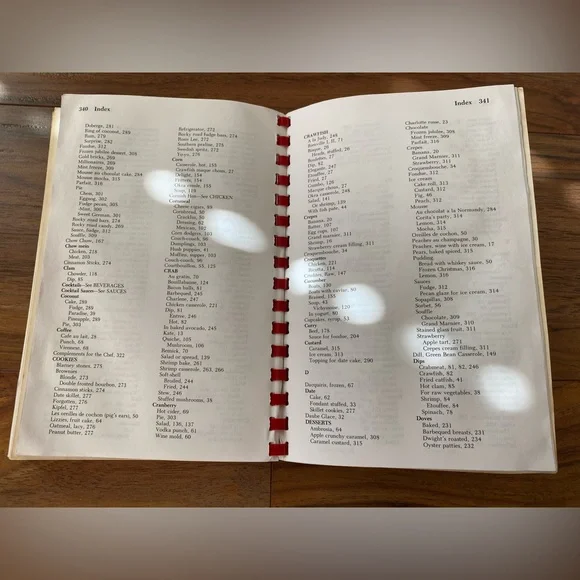 340 Index
Doberge, 281
Ring of coconut, 289
Rum, 279
Surprise, 282
Fondue, 312
Frozen jubilee dessert, 308
Gold bricks, 269
Millionaires, 269
Mint freeze, 309
Mousse au chocolat cake, 294
Mousse mocha, 315
Parfait, 316
Pie
Chess, 301
Eggnog, 302
Fudge pecan, 305
Mint, 300
Sweet German, 301
Rocky road bars, 274
Rocky road candy, 266
Sauce, fudge, 312
Souffle, 309
Chow Chow, 167
Chow mein
Chicken, 218
Meat, 203
Cinnamon Sticks, 274
Clam
Chowder, 118
Dip, 85
Cocktails—See BEVERAGES
Cocktail Sauces—See SAUCES
Coconut
Cake, 289
Fudge, 268
Paradise, 39
Pineapple, 289
Pie, 303
Coffee
Cafe au lait, 28
Punch, 68
Viennese, 68
Complements for the Chef, 322
COOKIES
Blarney stones, 275
Brownies
Blonde, 273
Double frosted bourbon, 273
Cinnamon sticks, 274
Date skillet, 277
Forgotten, 275
Kipfel, 277
Les oreilles de cochon (pig's ears), 50
Lizzies, fruit cake, 64
Oatmeal, lacy, 276
Peanut butter, 277
Refrigerator, 275
Rocky road fudge bars, 274
Rose Lee, 272
Southern praline, 275
Swedish spritz, 272
Corn
Casserole, hot, 155
Crawfish maque choux, 27
Delight, 154
Okra creole, 155
Soup, 119
Cornish Hen—See CHICKEN
Cornmeal
Cheese cigars, 89
Cornbread, 50
Cracklin, 50
Dressing, 62
Mexican, 102
Corn dodgers, 101
Couch-couch, 50
Dumplings, 103
Hush puppies, 41
Muffins, topper, 103
Couch-couch, 50
Courtbouillon, 55, 125
CRAB
Au gratin, 76
Bouillabaisse, 124
Bayou balls, 81
Barbequed, 245
Charlene, 247
Chicken casserole, 221
Dip, 81
Entree, 246
Hot, 82
In baked avocado, 245
Kate, 13
Quiche, 105
Mushroom, 106
Remick, 70
Salad or spread, 129
Shrimp bake, 261
Shrimp casserole, 263, 260
Soft shell
Broiled, 244
Fried, 244
Stew, 246
Stuffed mushrooms, 36
Cranberry
Hot coler, 69
Pie, 303
Salad, 136, 137
Vodka punch, 61
Wine mold, 60
Index 341
CRAWFISH
a la Judy, 248
Bisque, 20
Heads, stuffed, 26
Boulettes, 27
Dip, 82
Elegante, 247
Etouffee, 27
Fried, 27
Gumbo, 123
Maque choux, 27
Oyster casserole, 248
Salad, 141
Or shrimp, 139
With fish pate, 44
Crepes
Batter, 107
Egg cups, 107
Grand marnier, 311
Shrimp, 16
Strawberry cream filling, 311
Croquembouche, 34
Croquettes
Chicken, 211
Risotta, 114
Crudites, Raw, 147
Cucumber
Boats, 130
Boats with caviar, 80
Braised, 155
Soup, 43
Vichyssoise, 120
In yogurt, 80
Cupcakes, syrup, 53
Curry
Beef, 178
Sauce for boulou, 204
Custard
Caramel, 315
Ice cream, 313
Topping for date cake, 290
D
Dacquaris, frozen, 67
Date
Cake, 62
Fondant stuffed, 35
Skillet cookies, 277
Daube Glace, 32
DESSERTS
Ambrosia, 64
Apple crunchy caramel, 308
Caramel custard, 315
Charlotte russe, 23
Chocolate
Frozen jubilee, 308
Mint freeze, 309
Parfait, 316
Crepes
Banana, 29
Grand Marnier, 311
Strawberry, 311
Croquembouche, 34
Fondue, 312
Ice cream
Cake roll, 313
Custard, 312
Fig, 46
Peach, 312
Mousse
Au chocolat a la Normande, 284
Carita's party, 314
Lemon, 314
Mocha, 315
Oreilles de cochon, 50
Peaches au champagne, 30
Peaches, wine with cream, 17
Pears, baked spiced, 315
Pudding
Bread with whiskey sauce, 49
Frozen Christmas, 316
Lemon, 316
Sauces
Fudge, 312
Pecan glaze for ice cream, 314
Sopapillas, 308
Sorbet, 56
Souffle
Chocolate, 309
Grand Marnier, 310
Stained glass fruit, 311
Strawberry
Apple tart, 271
Crepes cream filling, 311
Dill, Green Bean Casserole, 149
Dips
Crabmeat, 81, 82, 246
Crawfish, 82
Fried catfish, 41
Hot clam, 85
For raw vegetables, 38
Shrimp, 84
Etouffee, 84
Spinach, 78
Doves
Baked, 231
Barbequed breasts, 231
Dwight's roasted, 234
Oyster patties, 232